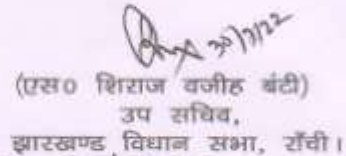 30/7/22
(एस० शिराज वजीह बंटी)
उप सचिव,
झारखण्ड विधान सभा, राँची।